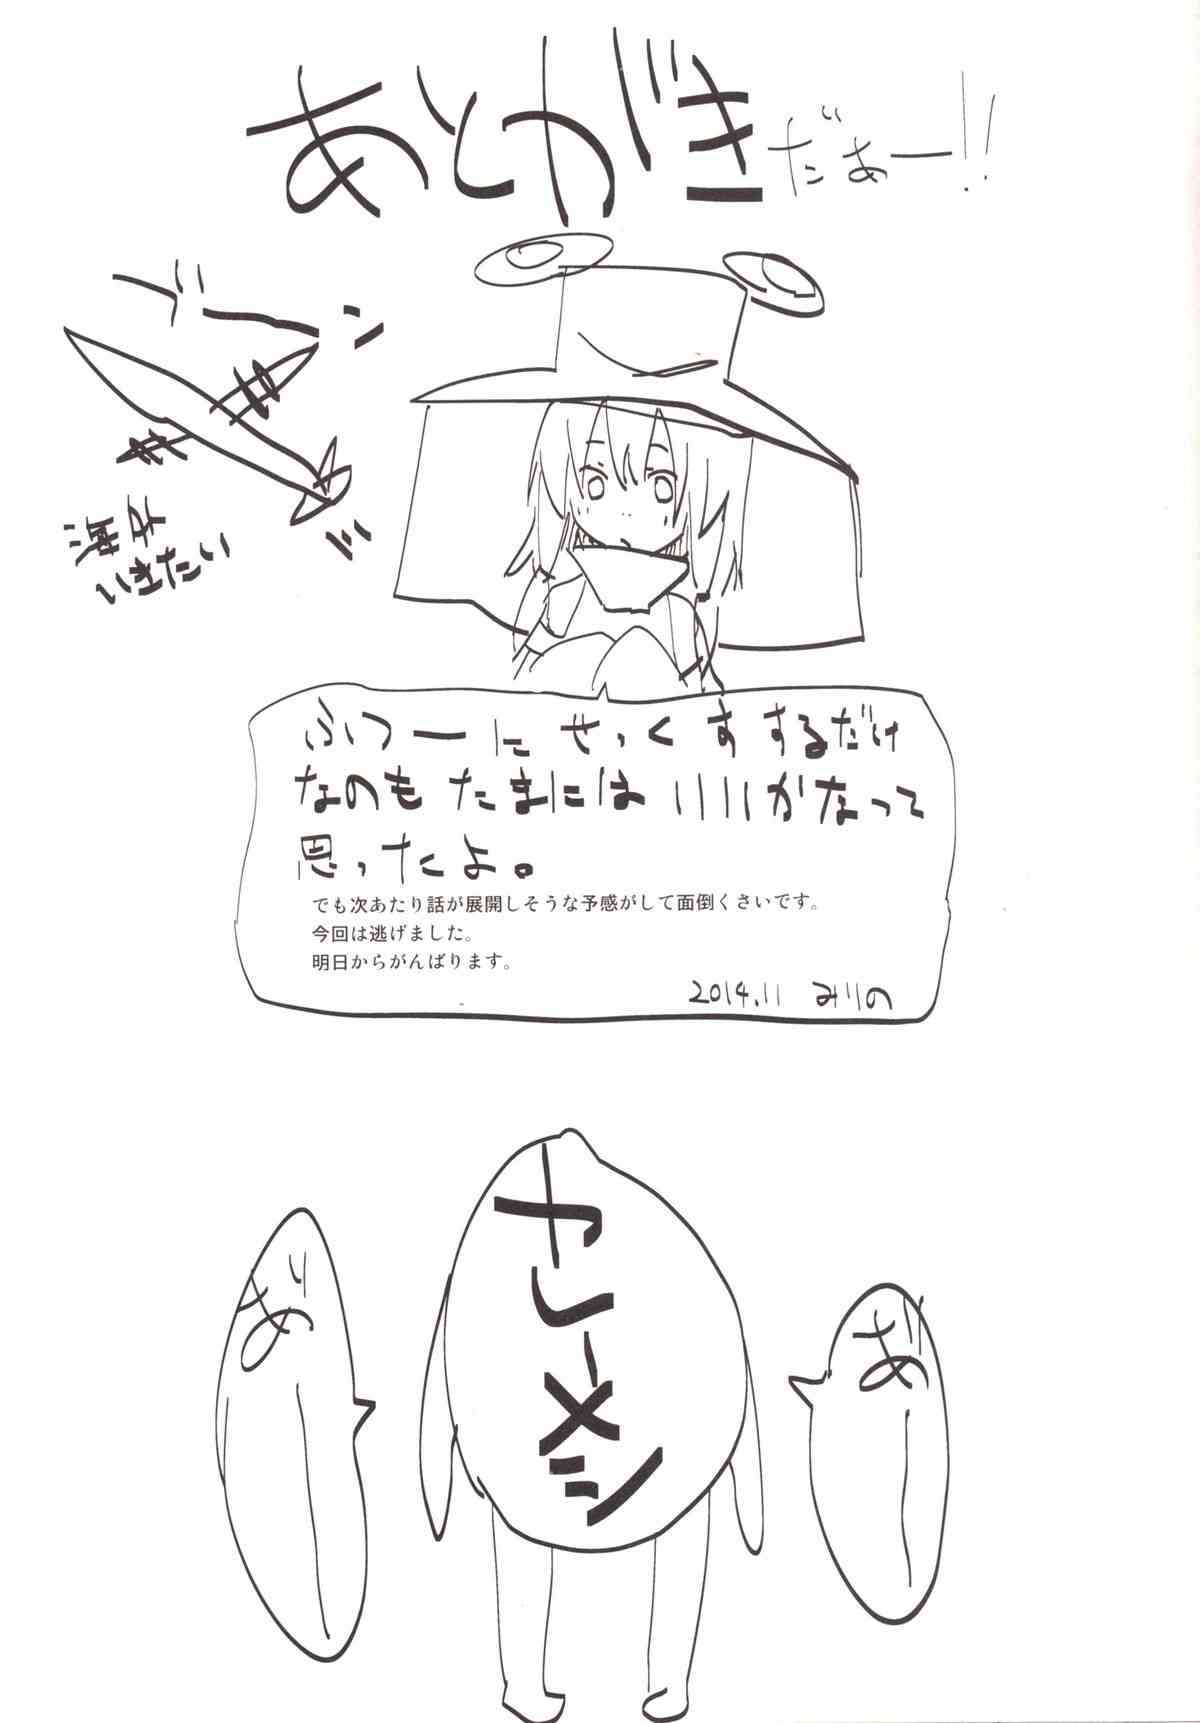 あとがき だぁー!!
ブーン
海子
いきたい
ふつーに せっくす するだけ
なのも たまには イイかなって
思ったよ。
でも次あたり話が展開しそうな予感がして面倒くさいです。
今回は逃げました。
明日からがんばります。
2014.11 みりの
カレーメシ